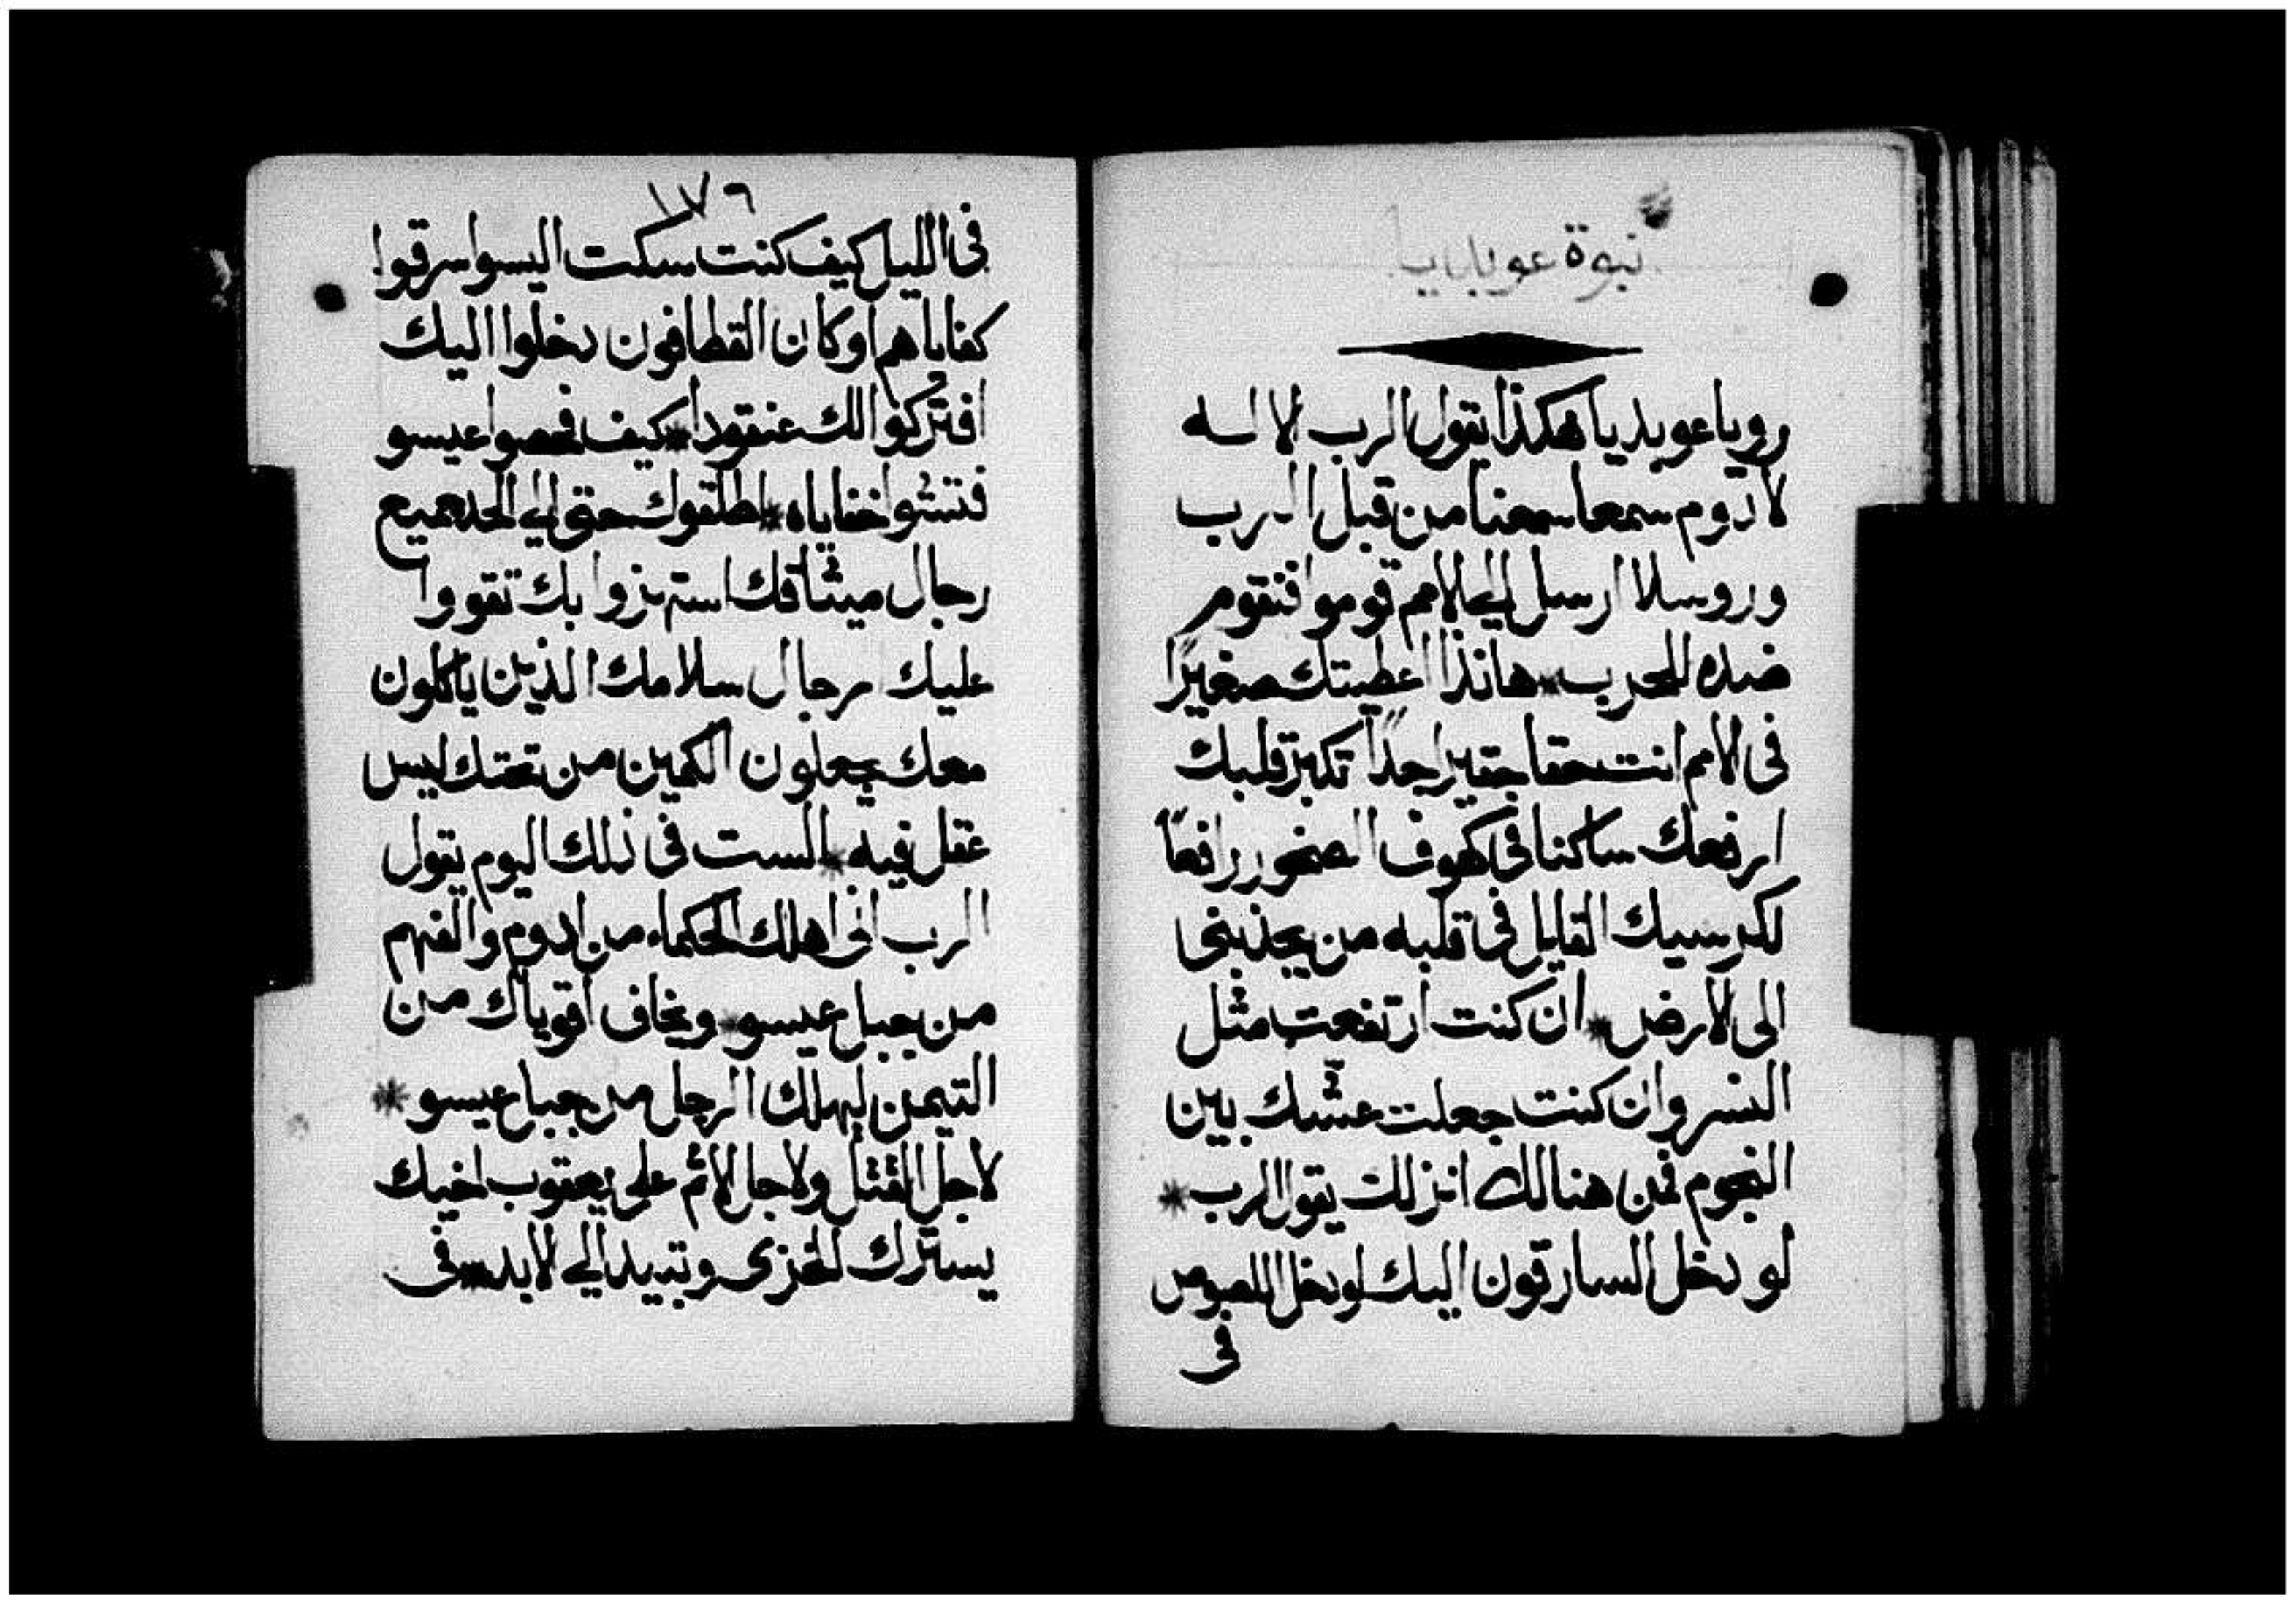 نبوة عوبديا
رويا عوبديا هكذا يقول الرب الاله
لادوم سمعا سمعنا من قبل الرب
وروسلا ارسل الي الامم قوموا فنقوم
ضده للحرب * هانذا اعطيتك صغيرًا
في الامم انت حقا حقير اجدًا تكبر قلبك
ارفعك ساكنا في كهوف الصخور رافعًا
لكرسيك القايل في قلبه من يجذبني
الى الارض * ان كنت ارتفعت مثل
النسر وان كنت جعلت عشك بين
النجوم فمن هنالك انزلك يقول الرب *
لو دخل السارقون اليك لو دخل اللصوص
في
١٧٦
في الليل كيف كنت سكت اليسوا سرقوا
كفاياهم او كان القطافون دخلوا اليك
افتركوا لك عنقودا * كيف فحصوا عيسو
فتشوا خفاياه * اطلقوك حتى الي الحد جميع
رجال ميثاقك استهزوا بك تقووا
عليك رجال سلامك الذين ياكلون
معك يجعلون الكمين من تحتك ليس
عقل فيه * الست في ذلك اليوم يقول
الرب اني اهلك الحكماء من ادوم والفهم
من جبل عيسو * ويخاف اقوياك من
التيمن ليهلك الرجل من جبل عيسو *
لاجل القتل ولاجل الاثم على يعقوب اخيك
يسترك الخزى وتبيد الي الابد * في